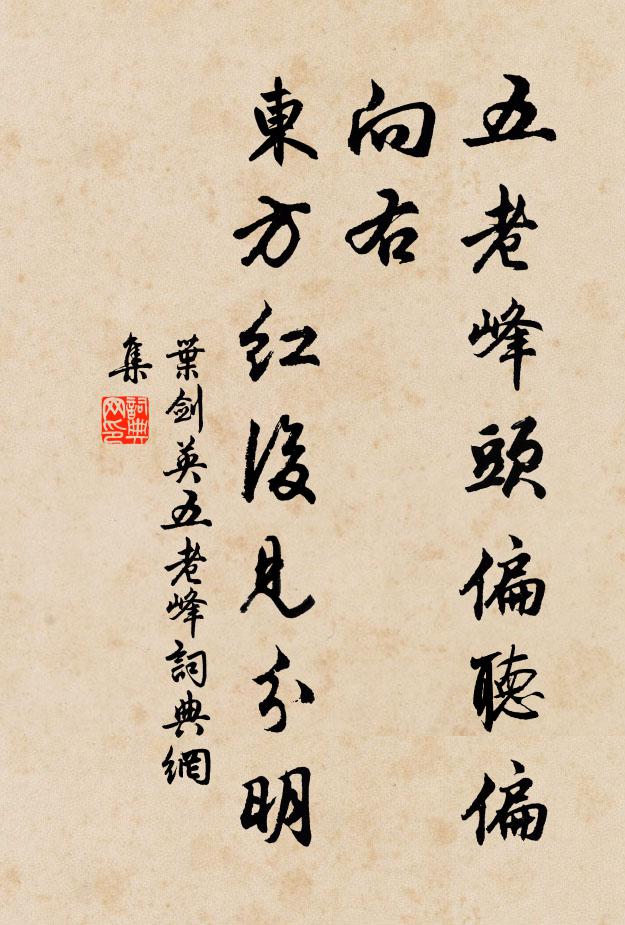 五老峰頭偏聽偏
向右
東方紅後見分明
葉劍英五老峰詞典網
集
詞典
网印